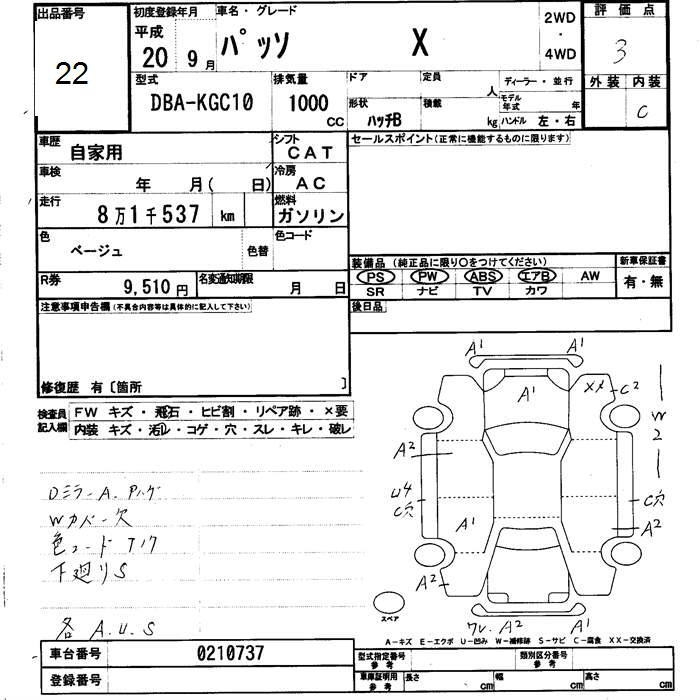 出品番号
22
初度登録年月
平成
20 9月
車名・グレード
パッソ X
2WD
・
4WD
評価点
3
外装 内装
C
型式
DBA-KGC10
排気量
1000
CC
ドア 定員 人
形状 ハッチB 積載 kg
ディーラー・並行
モデル年式 年
ハンドル 左・右
車歴 自家用
シフト CAT
車検 年 月( 日)
冷房 AC
走行 8万1千537 km
燃料 ガソリン
色 ベージュ 色替
色コード
R券 9,510円
名変通知期限 月 日
セールスポイント(正常に機能するものに限ります)
装備品 (純正品に限り〇をつけてください)
PS PW ABS エアB AW
SR ナビ TV カワ
新車保証書
有・無
後日品
注意事項申告欄(不具合内容等は具体的に記入して下さい)
修復歴 有〔箇所 〕
検査員記入欄
FW キズ・飛石・ヒビ割・リペア跡・×要
内装 キズ・汚レ・コゲ・穴・スレ・キレ・破レ
Dミラー A.
Wカバー欠
色コード T17
下廻りS
各 A.U.S
A1 A1
A1
XX C2
W2
A2
U4
C穴
C穴
A2
A1
A2
スペア
ワレ A2 A1
A-キズ E-エクボ U-凹み W-補修跡 S-サビ C-腐食 XX-交換済
車台番号 0210737
登録番号
型式指定番号 参考
類別区分番号 参考
車庫証明用 参考
長さ cm 幅 cm 高さ cm